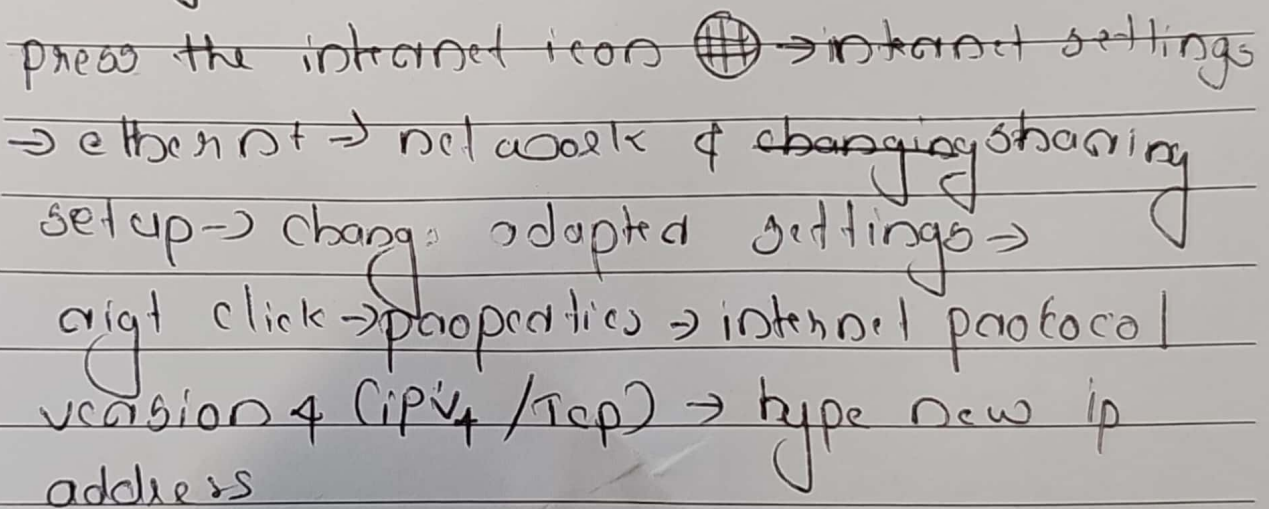 press the internet icon → internet settings
→ ethernt → network & changing sharing
setup → change adapted settings →
rigt click → properties → internet protocol
version 4 (ipv4 /Tcp) → type new ip
address